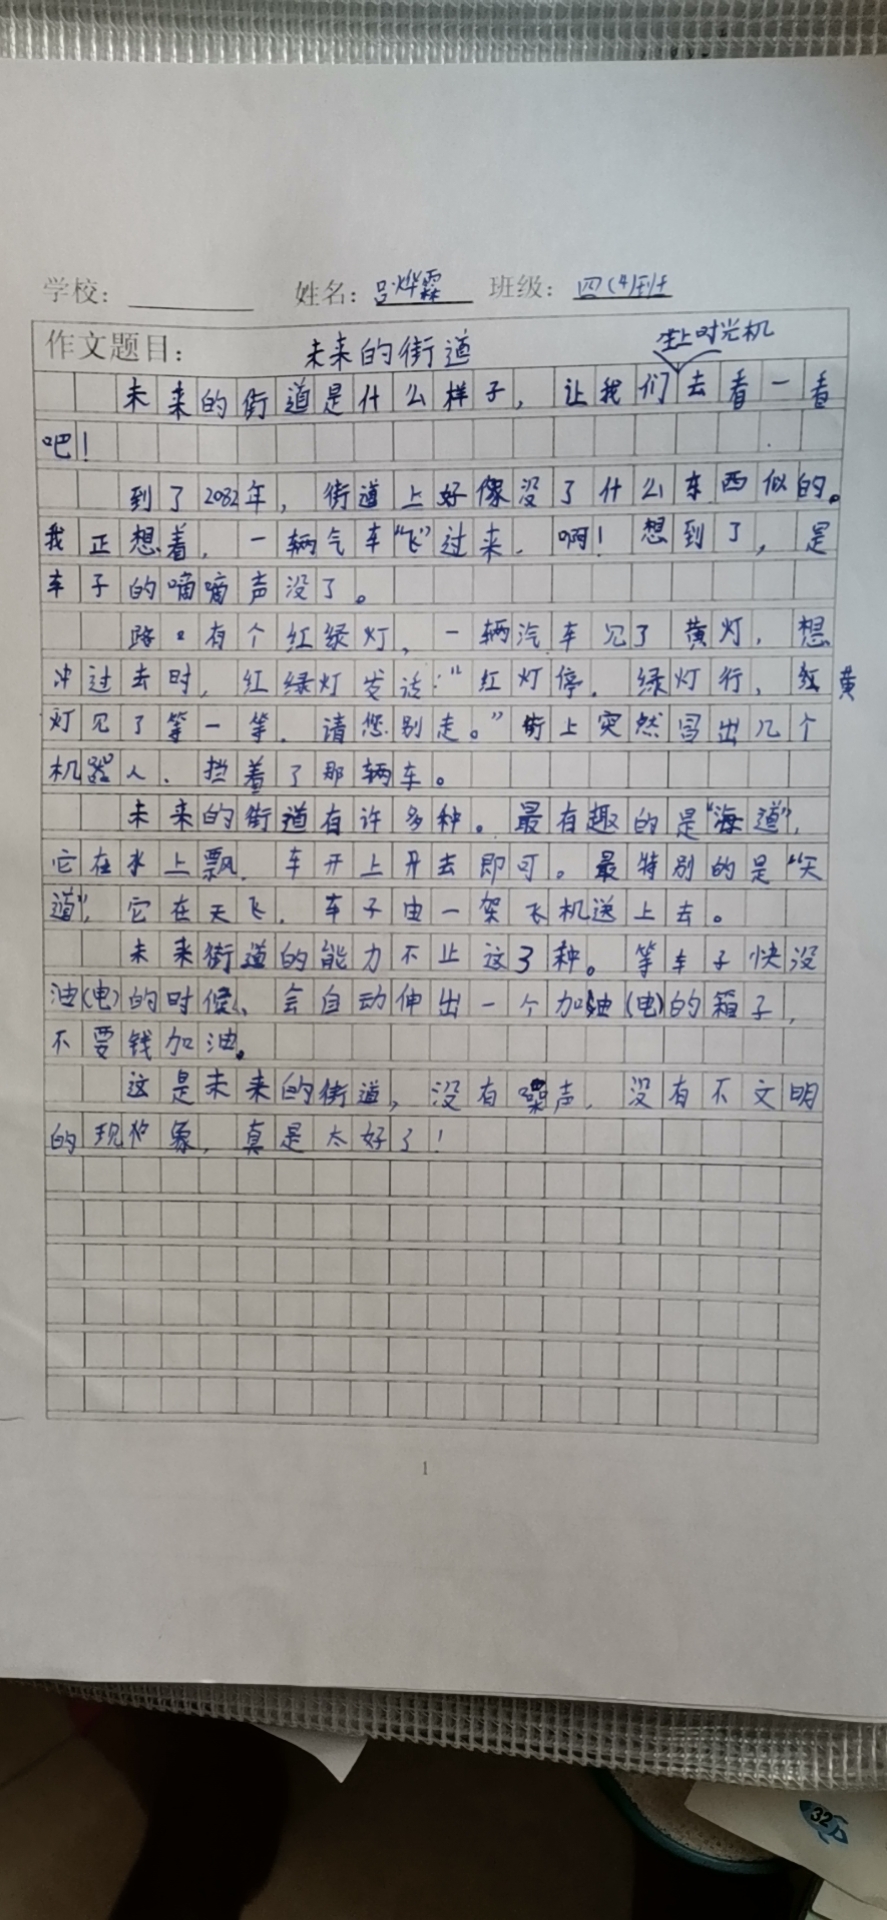 学校: 姓名: 吕烨霖 班级: 四(4)班
作文题目: 未来的街道
坐上时光机
未来的街道是什么样子，让我们去看一看
吧！
到了2082年，街道上好像没了什么东西似的。
我正想着，一辆气车“飞”过来，啊！想到了，是
车子的嘀嘀声没了。
路上有个红绿灯，一辆汽车见了黄灯，想
冲过去时，红绿灯发话：“红灯停，绿灯行，黄
灯见了等一等，请您别走。”街上突然冒出几个
机器人，挡着了那辆车。
未来的街道有许多种。最有趣的是“海道”，
它在水上飘，车开上开去即可。最特别的是“天
道”，它在天飞，车子由一架飞机送上去。
未来街道的能力不止这3种。等车子快没
油(电)的时候，会自动伸出一个加油(电)的箱子，
不要钱加油。
这是未来的街道，没有噪声，没有不文明
的现象，真是太好了！
1
32